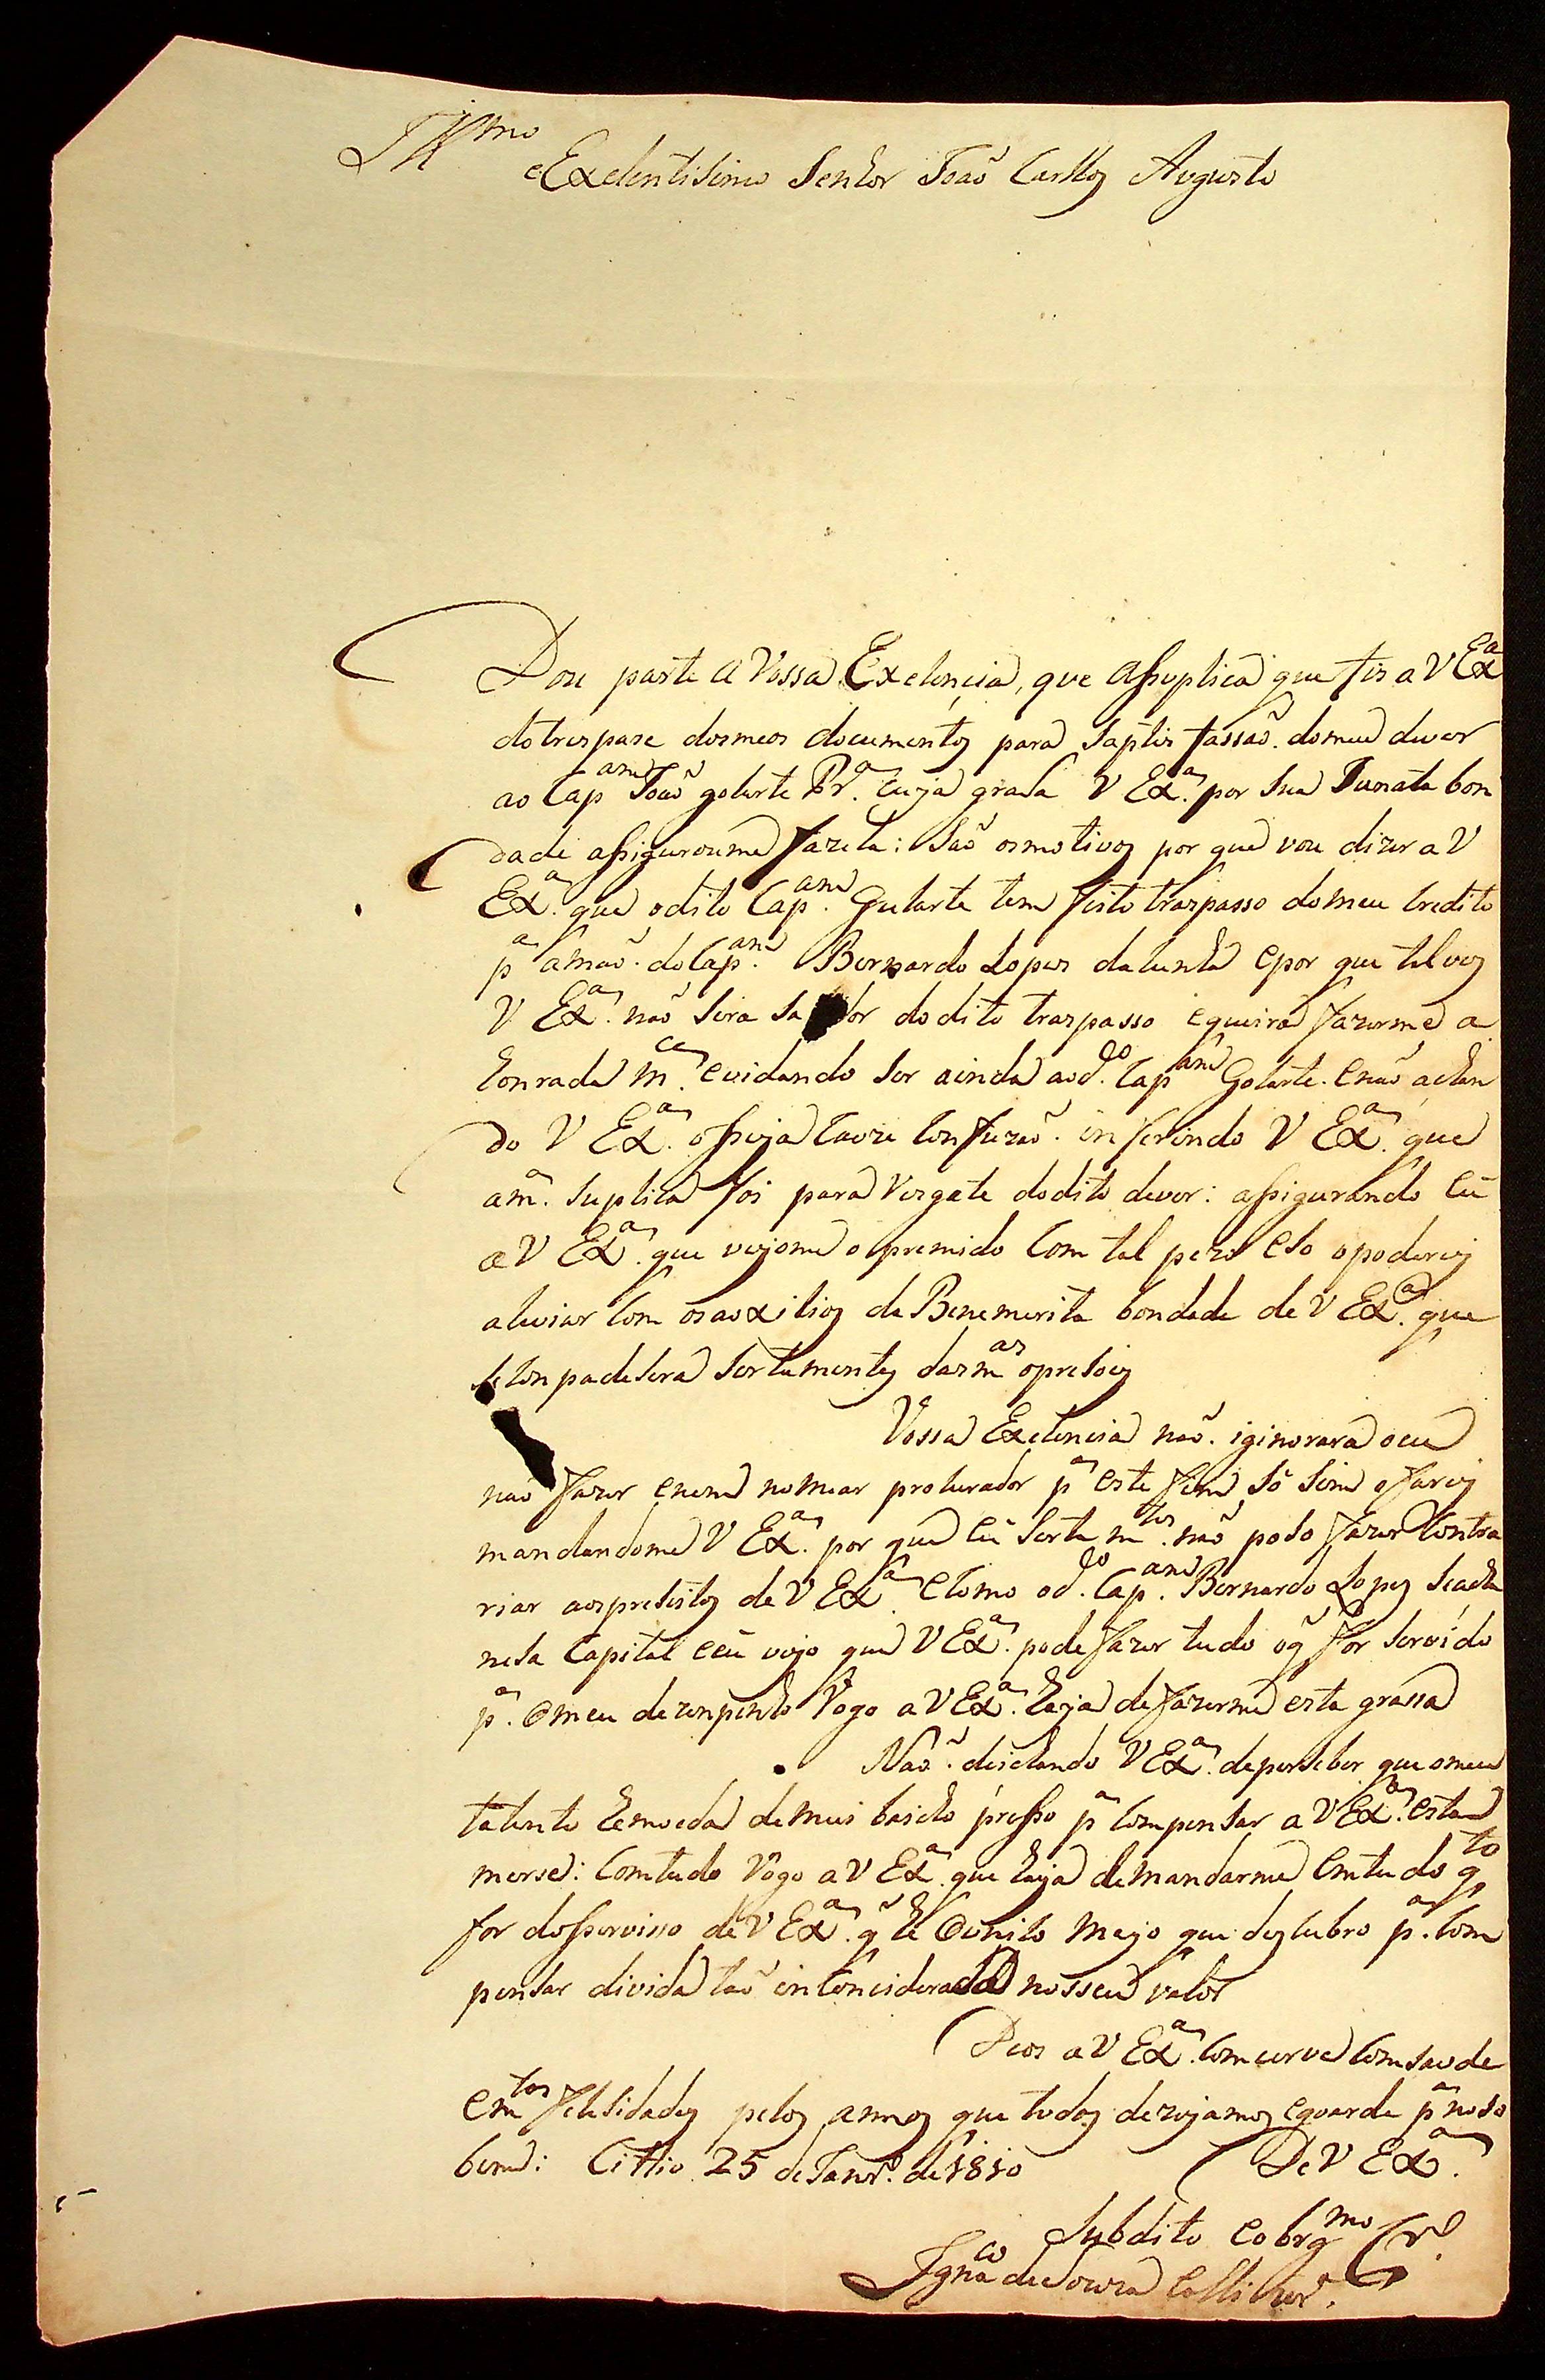 Illmo
eExelentisimo Senhor Joaõ Carllos Augusto
Dou parte a Vossa Exelençia, que assuplica que fis a V Exa
do trespase dosmeos documentos para saptisfassaõ. domeu dever
ao Capam Joaõ golarte Pra. cuja grasa V Exa. por sua Innata bon
dade assiguroume fazela: Saõ osmotivos por que vou dizer a V
Exa. que odito Capam. Gularte tem feito traspasso domeu Credito
pa amaõ. do Capam. Bernardo Lopes dacunha epor que talves
V Exa. naõ sera sabedor dodito traspasso equeira fazerme a
honrada mce. cuidando ser ainda aod.do Capam Golarte. enaõ achan
do V Exa. osseja cauze confuzaõ. in ferindo V Exa. que
a ma. suplica foi para Resgate dodito dever: assigurando eu
a V Exa. que vejome opremido com tal pezo eso opoderej
aleviar com osauxilios da Benemerita bondade de V Exa. que
secompadesera sertamentes dasmas opresois
Vossa Exelencia naõ. iginorara oeu
naõ fazer enem nomear procurador pa este fim só sim ofarej
mandandome V Exa. por que eu serta mtes. naõ poso fazer Contra
riar aospreseitos de V Exa. eComo od.do Capam. Bernardo Lopes seacha
nesa Capital eeu vejo que V Exa. pode fazer tudo oq̃ for servido
pa. omeu dezenpenho Rogo a V Exa. haja defazerme esta grassa
Naõ. deichando V Exa. deperseber que omeu
talento hemoeda demui baicho presso pa compensar a V Exa. esta
merse: Comtudo Rogo a V Exa. que haja demandarme emtudo qto
for dosservisso de V Exa. q̃ he ounico meyo que descubro pa. com
pensar divida taõ inConciderada nosseu valor
Deos a V Exa. comcerve Comsaude
emtas felisidades pelos annos que todos dezejamos eguarde pa noso
bem: Cittio 25 de Janro. de 1810 De V Exa.
Subdito eobrgmo Cro.
Ignaco deSouza